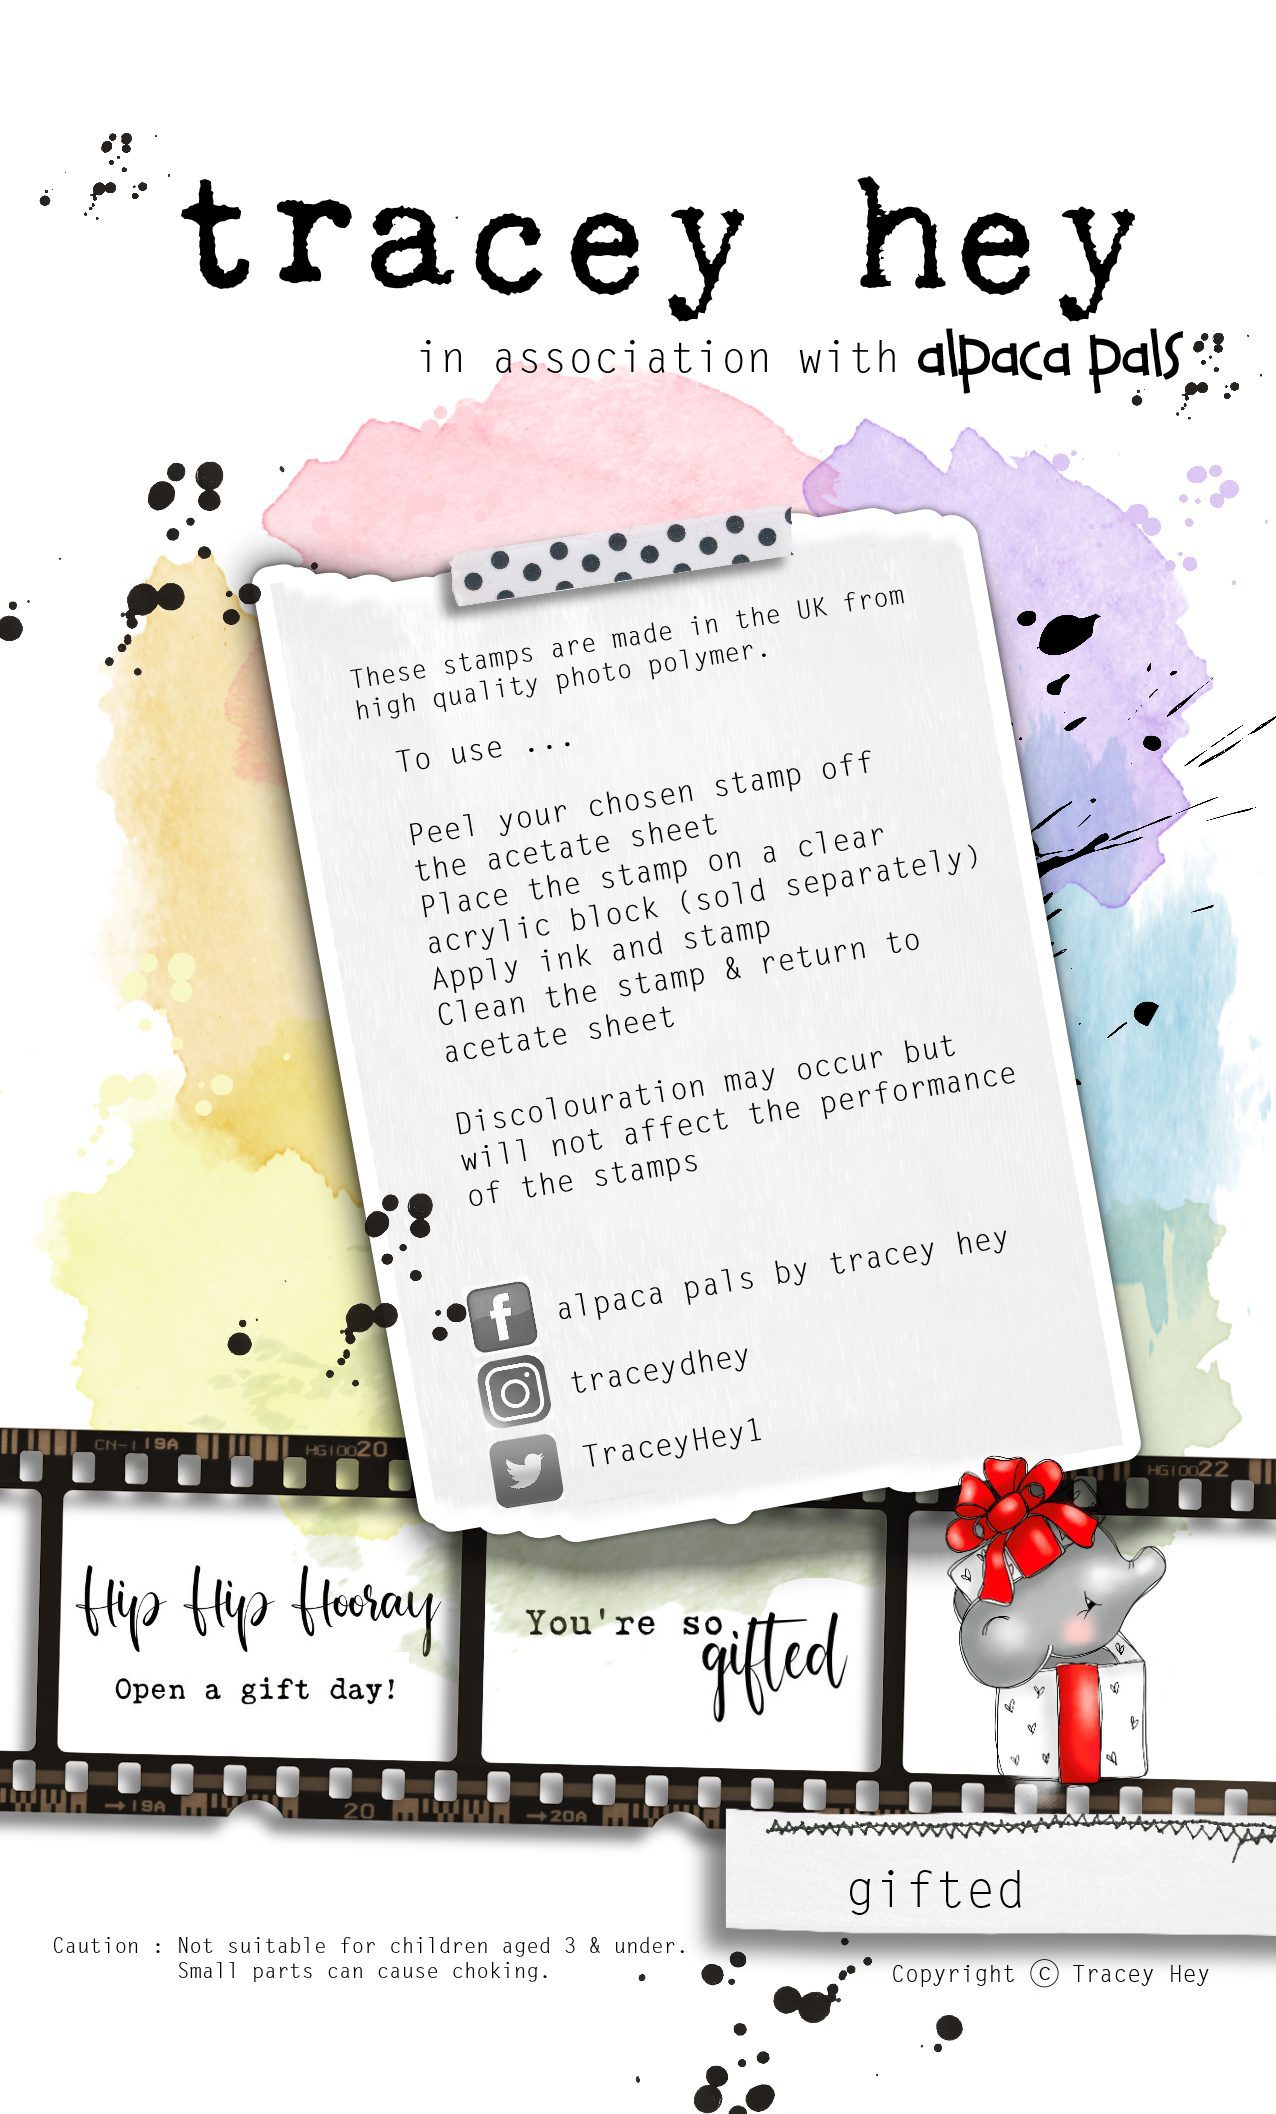 tracey hey
in association with alpaca pals
These stamps are made in the UK from
high quality photo polymer.
To use ...
Peel your chosen stamp off
the acetate sheet
Place the stamp on a clear
acrylic block (sold separately)
Apply ink and stamp
Clean the stamp & return to
acetate sheet
Discolouration may occur but
will not affect the performance
of the stamps
alpaca pals by tracey hey
traceydhey
TraceyHey1
CN-1 19A
HG10020
HG10022
Hip Hip Hooray
Open a gift day!
You're so
gifted
→19A
20
→20A
gifted
Caution : Not suitable for children aged 3 & under.
Small parts can cause choking.
Copyright © Tracey Hey